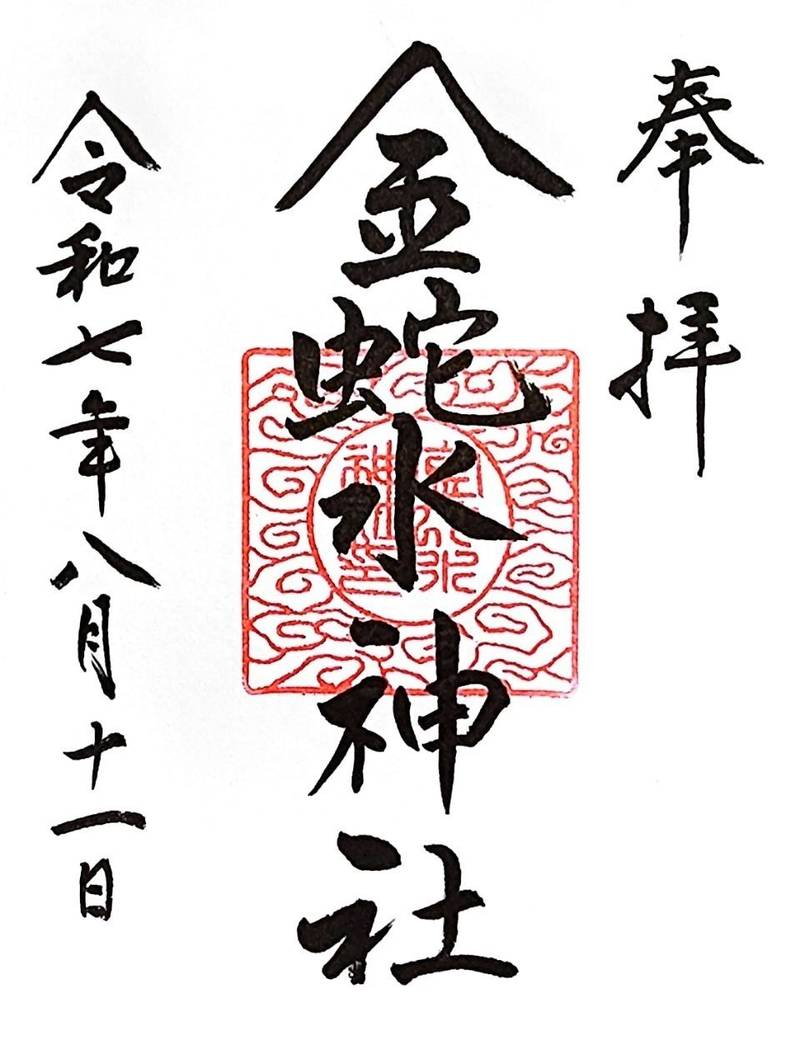 奉拝
金蛇水神社
令和七年八月十一日